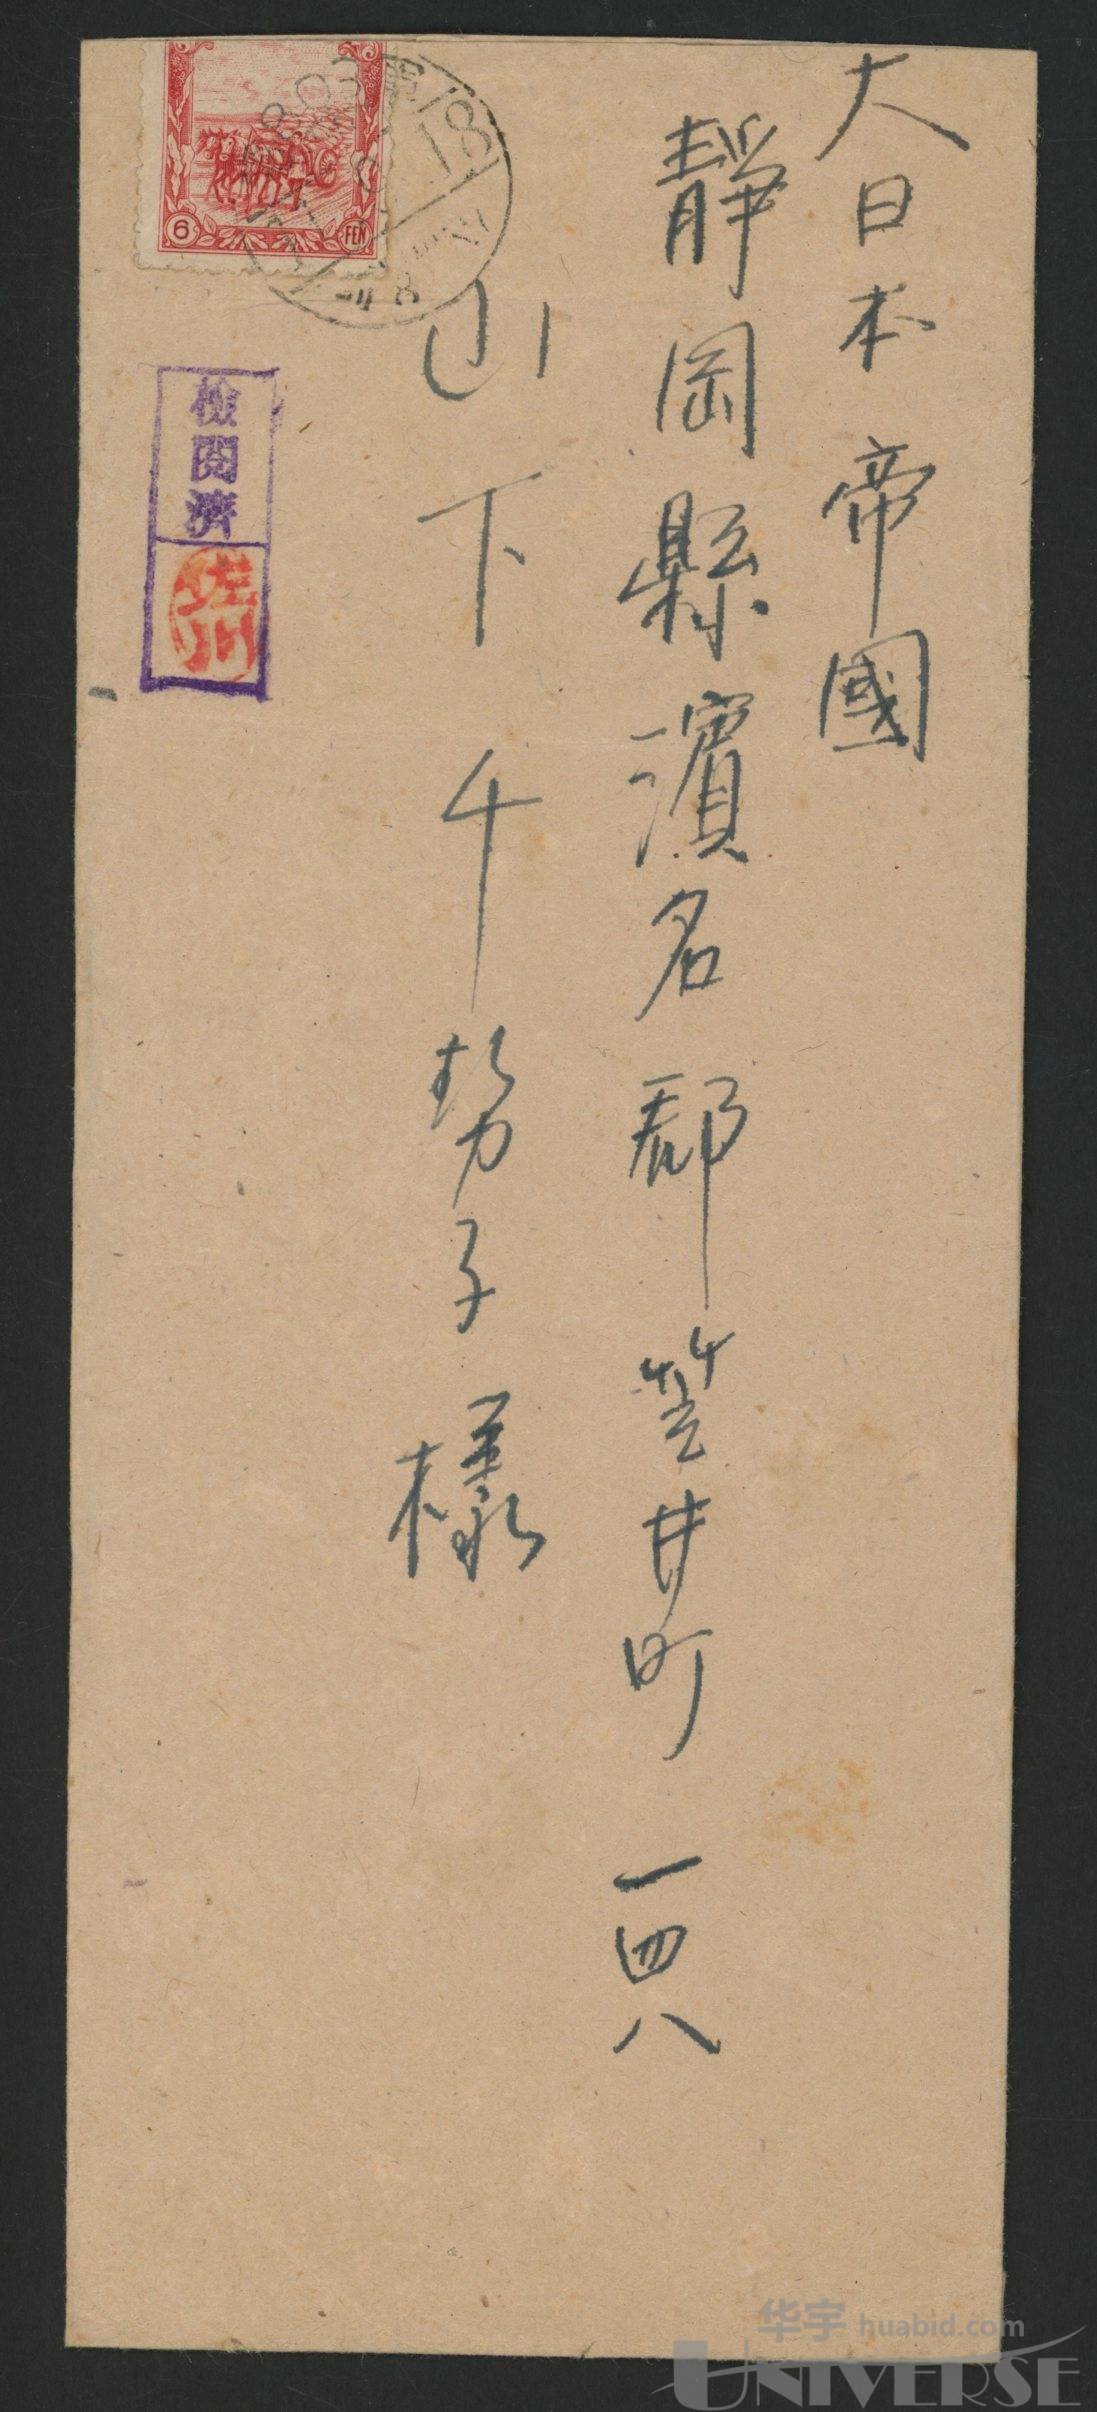 大日本帝國
靜岡縣濱名郡笠井町一四八
山下千勢子様
6
FEN
18
檢閱濟
佐川
华宇 huabid.com
UNIVERSE